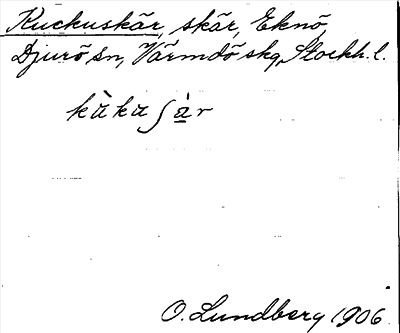 Kuckuskär, skär, Eknö,
Djurö sn, Värmdö skg, Stockh. l.
kὰkaʃàr
O. Lundberg 1906